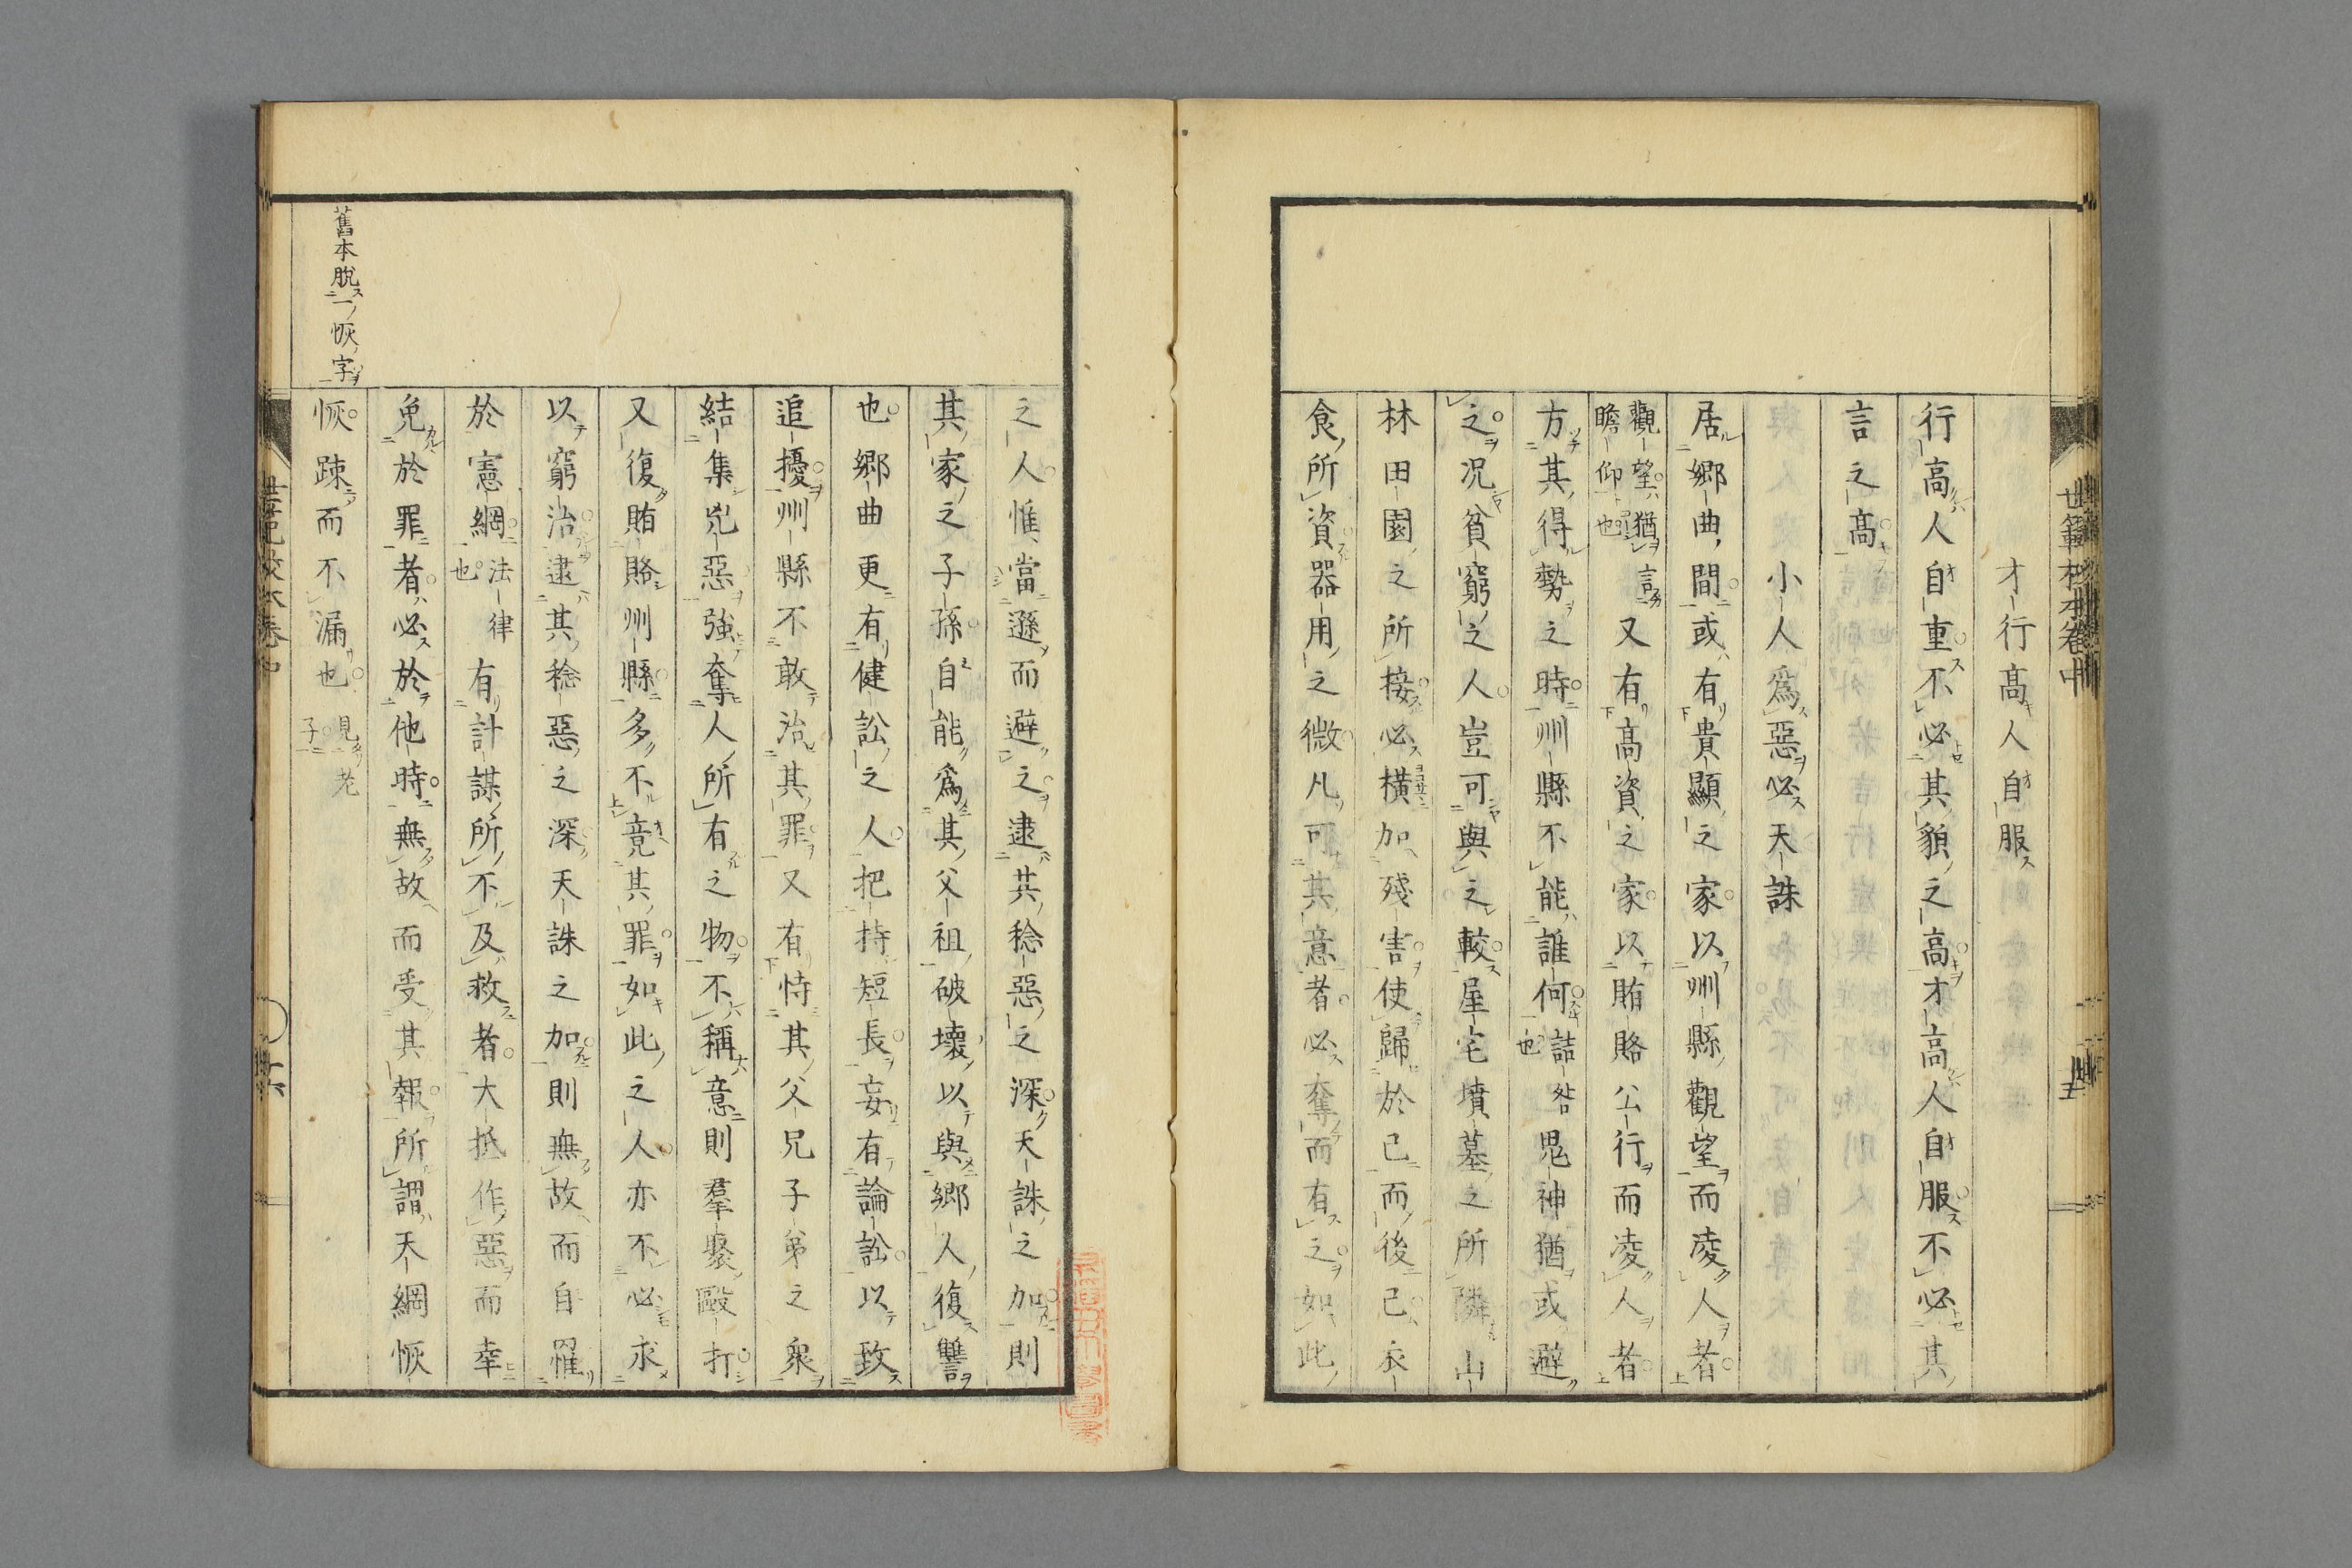 世範校本卷中
五
才行髙人自服
行高人自重不必其貌之高才高人自服不必其
言之髙
小人爲惡必天誅
居鄉曲間或有貴顯之家以州縣觀望而凌人者
觀望猶言瞻仰也又有高資之家以賄賂公行而凌人者
方其得勢之時州縣不能誰何詰咎也鬼神猶或避
之况貧窮之人豈可與之較屋宅墳墓之所隣山
林田園之所接必横加殘害使歸於己而後已衣
食所資器用之微凡可其意者必奪而有之如此
之人惟當遜而避之逮其稔惡之深天誅之加則
其家之子孫自能爲其父祖破壞以與鄉人復讐
也鄉曲更有健訟之人把持短長妄有論訟以致
追擾州縣不敢治其罪又有恃其父兄子弟之衆
結集兇惡強奪人所有之物不稱意則羣聚毆打
又復賄賂州縣多不竟其罪如此之人亦不必求
以窮治逮其稔惡之深天誅之加則無故而自罹
於憲綱法律也有計謀所不及救者大抵作惡而幸
免於罪者必於他時無故而受其報所謂天網恢
恢踈而不漏也見老子
舊本脫一恢字
世範校本卷中
六